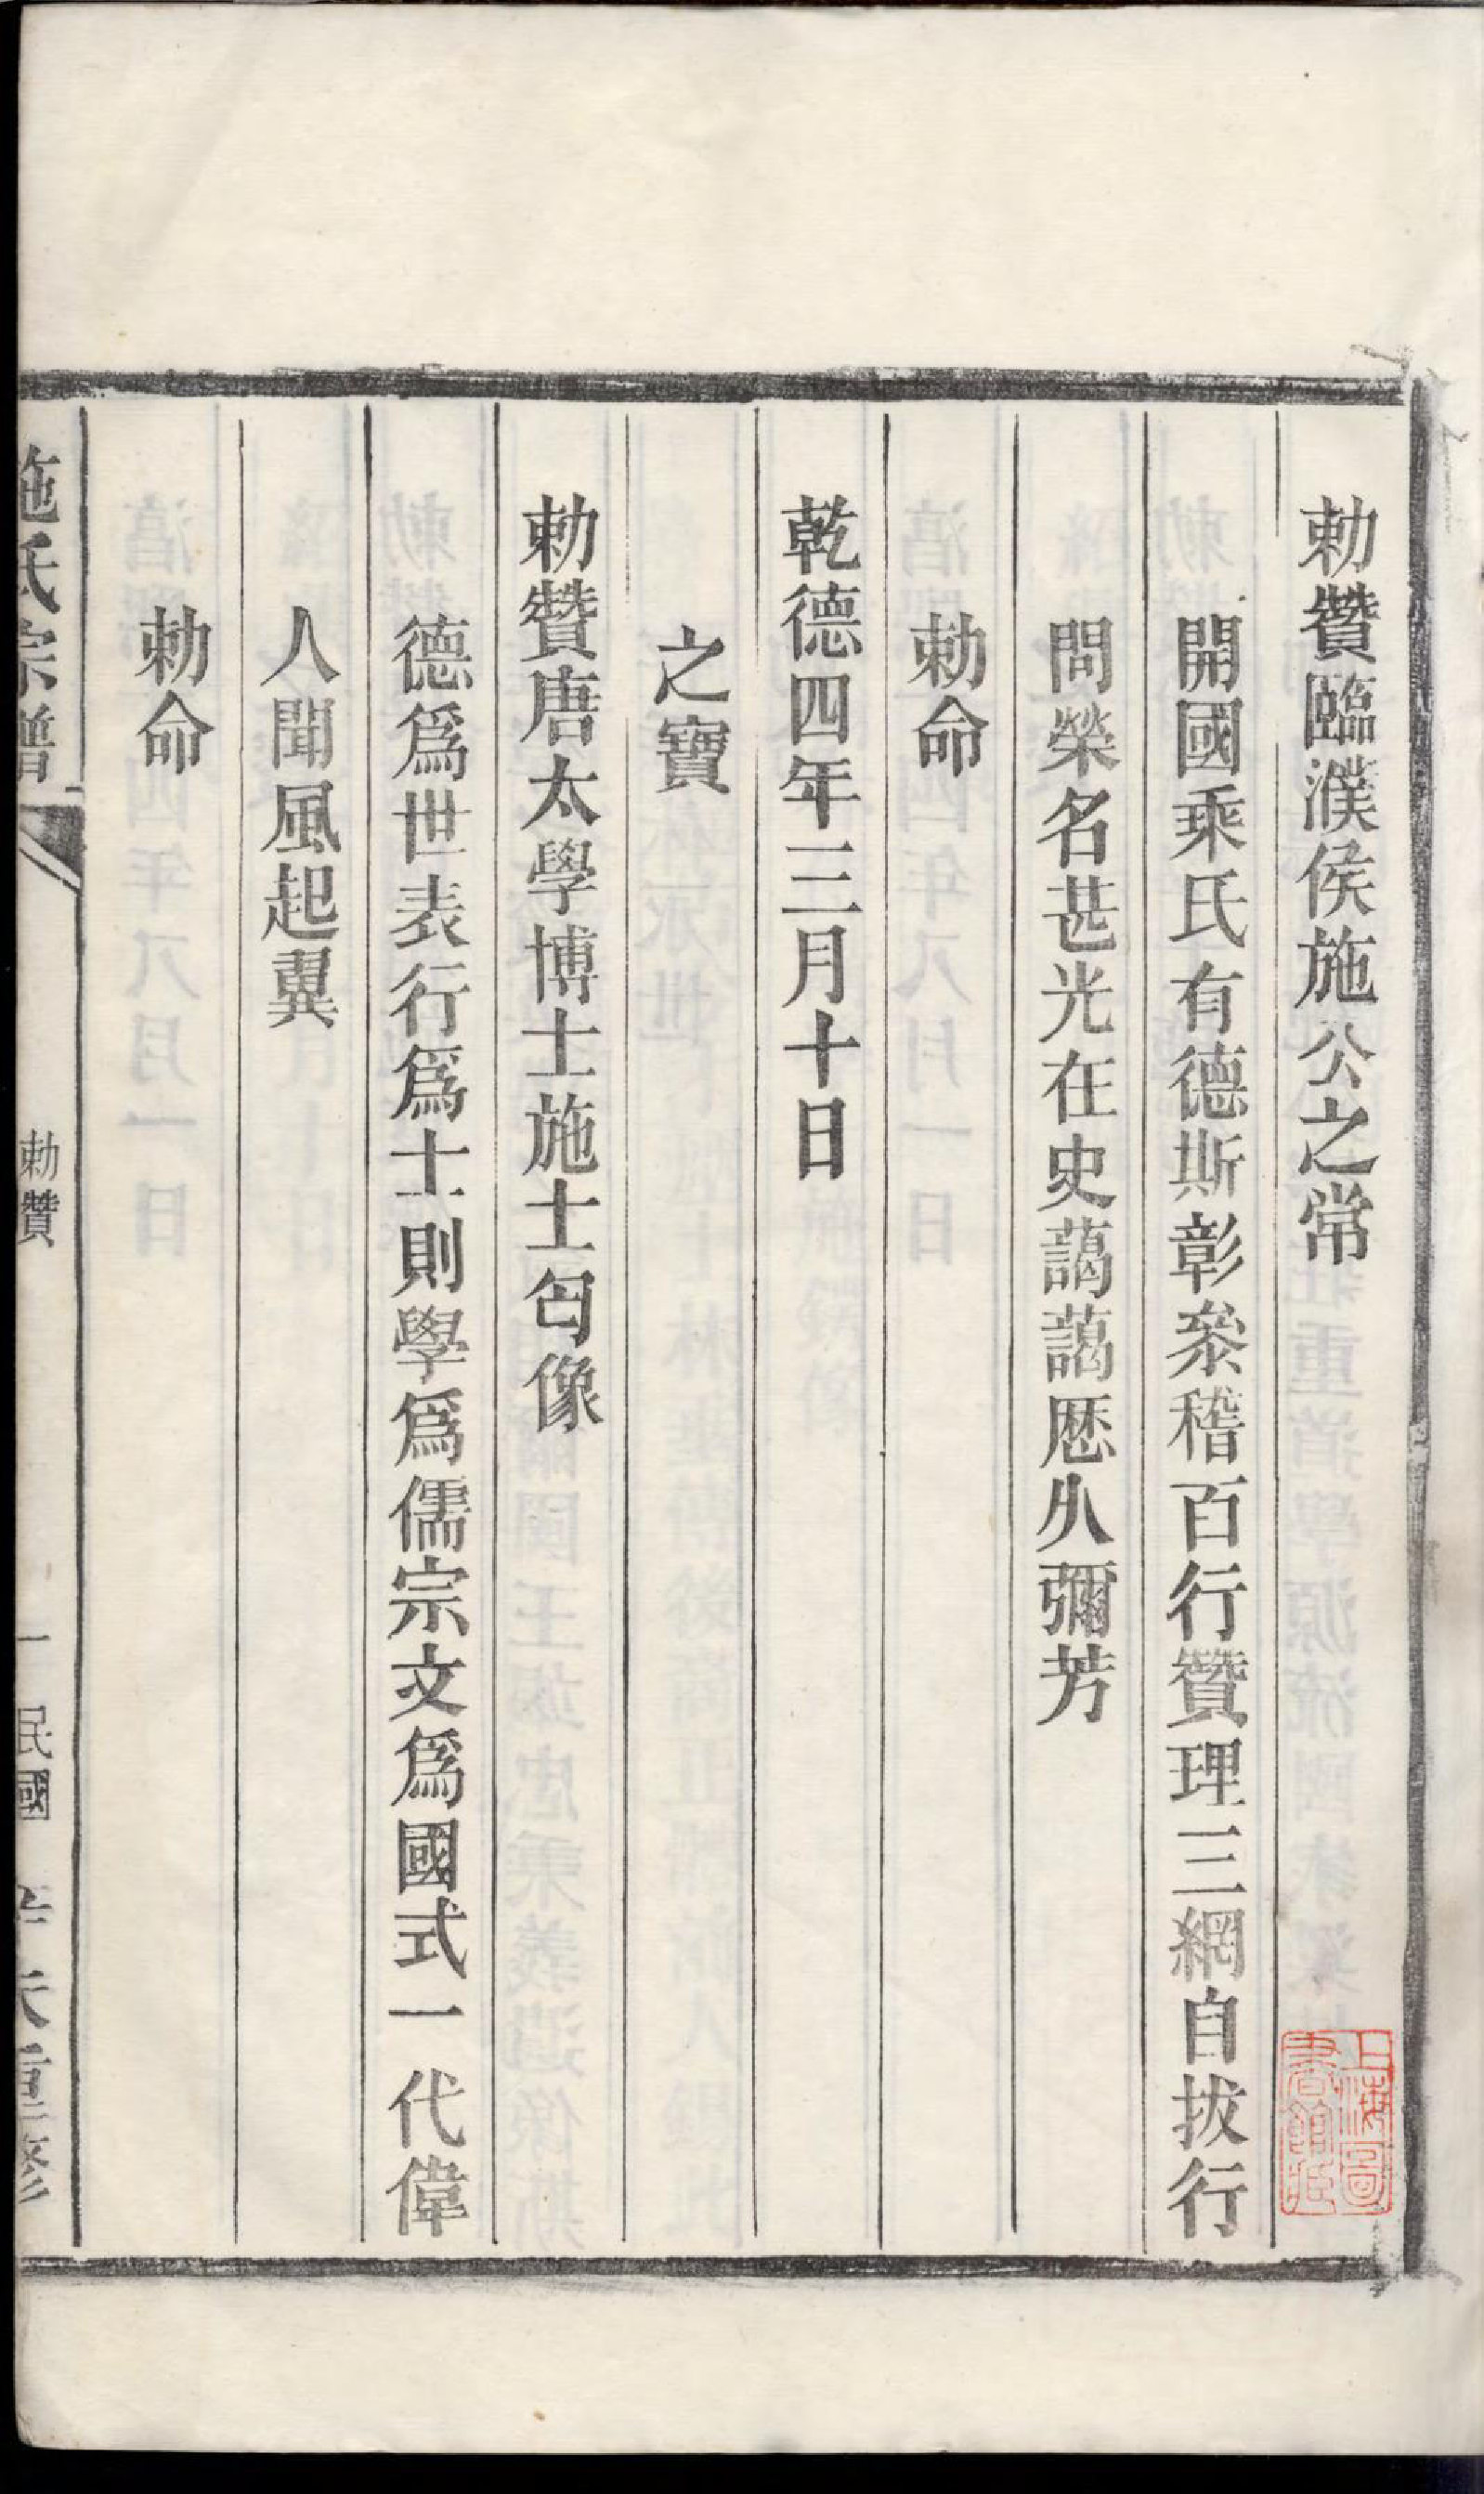 勅贊臨濮侯施公之常
開國乘氏有德斯彰叅稽百行贊理三網自拔行
問榮名甚光在史藹藹歷久彌芳
勅命
乾德四年三月十日
之寶
勅贊唐太學博士施士匄像
德爲世表行爲士則學爲儒宗文爲國式一代偉
人聞風起翼
勅命
施氏宗譜
勅贊
一
民國
重修
上海圖
書館藏